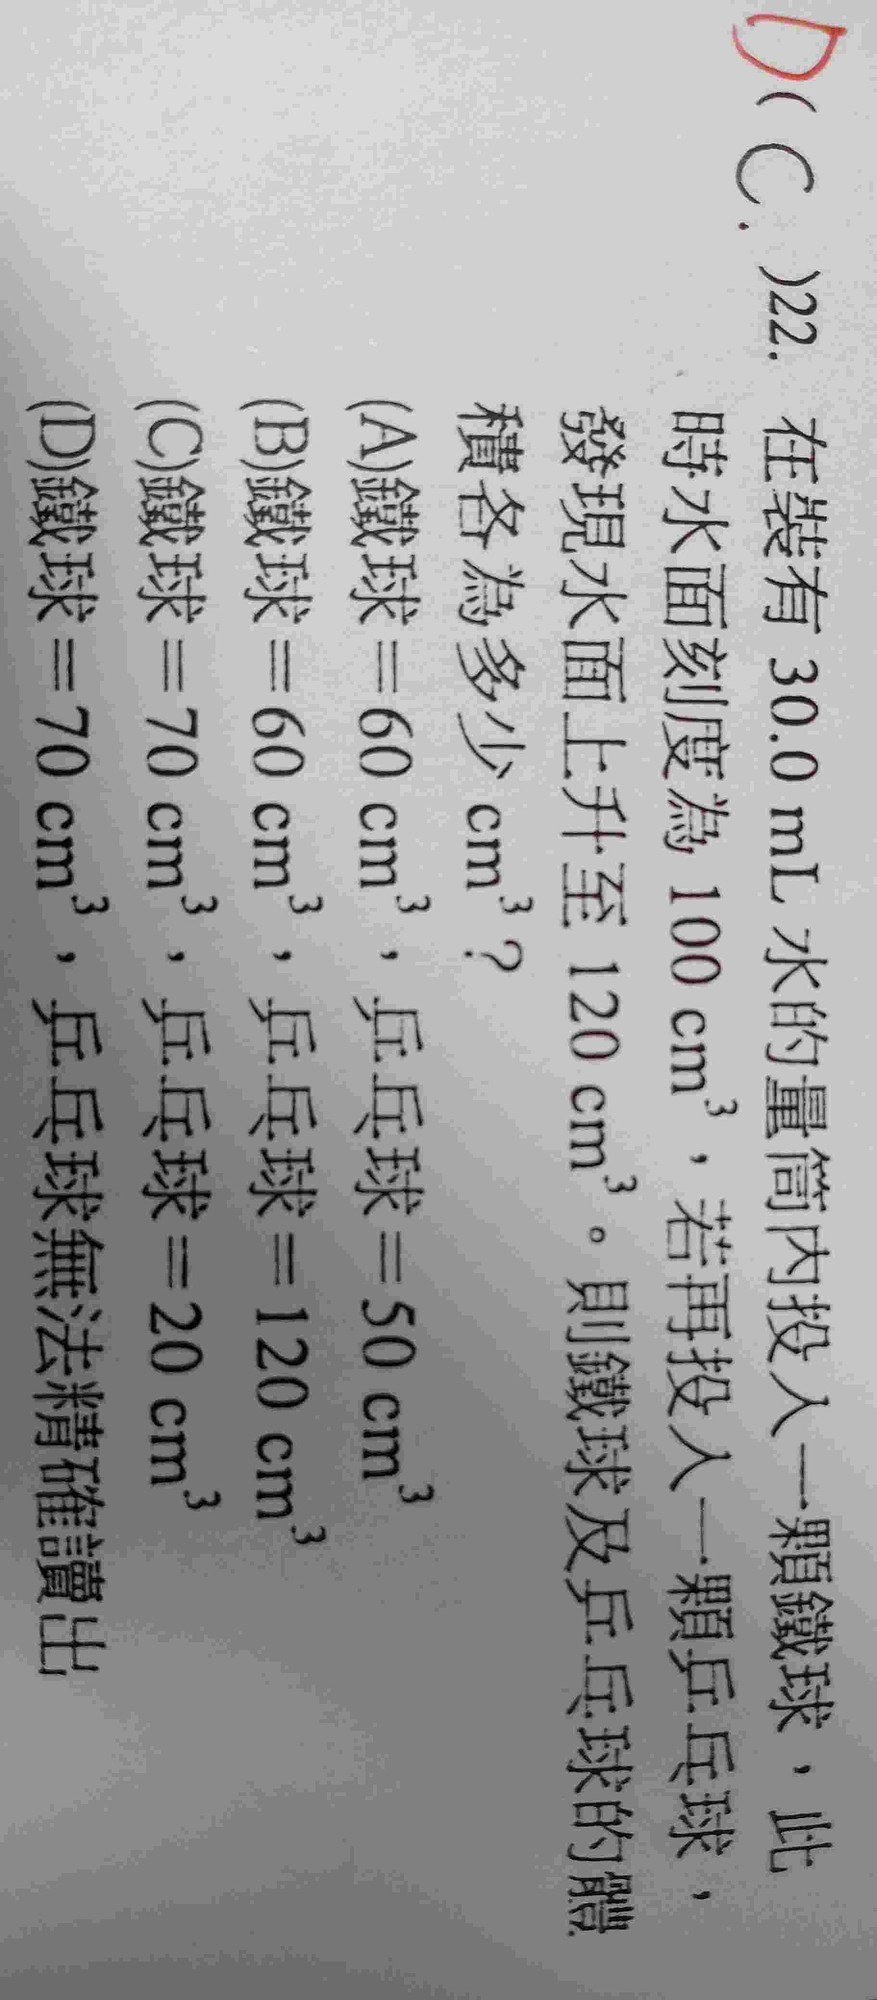 D( C. )22. 在裝有 30.0 mL 水的量筒內投入一顆鐵球，此
時水面刻度為 100 cm³，若再投入一顆乒乓球，
發現水面上升至 120 cm³。則鐵球及乒乓球的體
積各為多少 cm³？
(A)鐵球＝60 cm³，乒乓球＝50 cm³
(B)鐵球＝60 cm³，乒乓球＝120 cm³
(C)鐵球＝70 cm³，乒乓球＝20 cm³
(D)鐵球＝70 cm³，乒乓球無法精確讀出